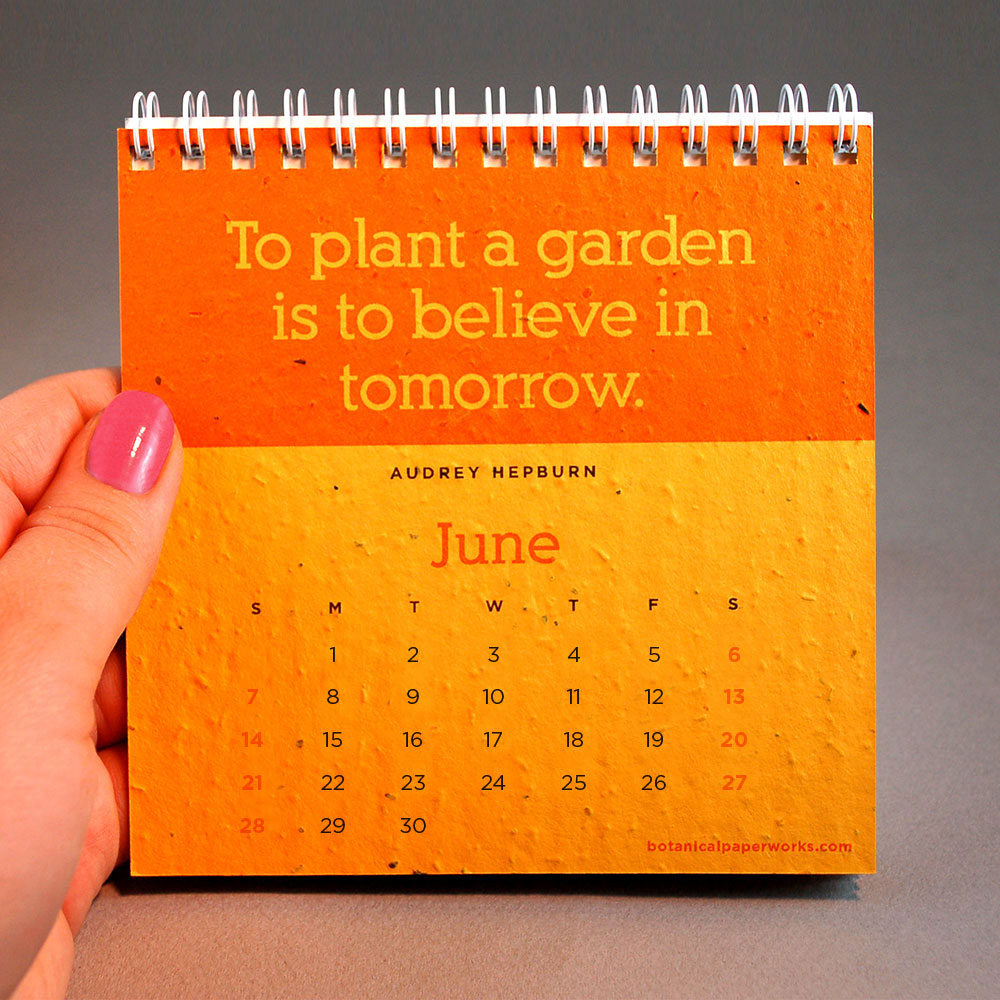 To plant a garden
is to believe in
tomorrow.
AUDREY HEPBURN
June
S M T W T F S
1 2 3 4 5 6
7 8 9 10 11 12 13
14 15 16 17 18 19 20
21 22 23 24 25 26 27
28 29 30
botanicalpaperworks.com